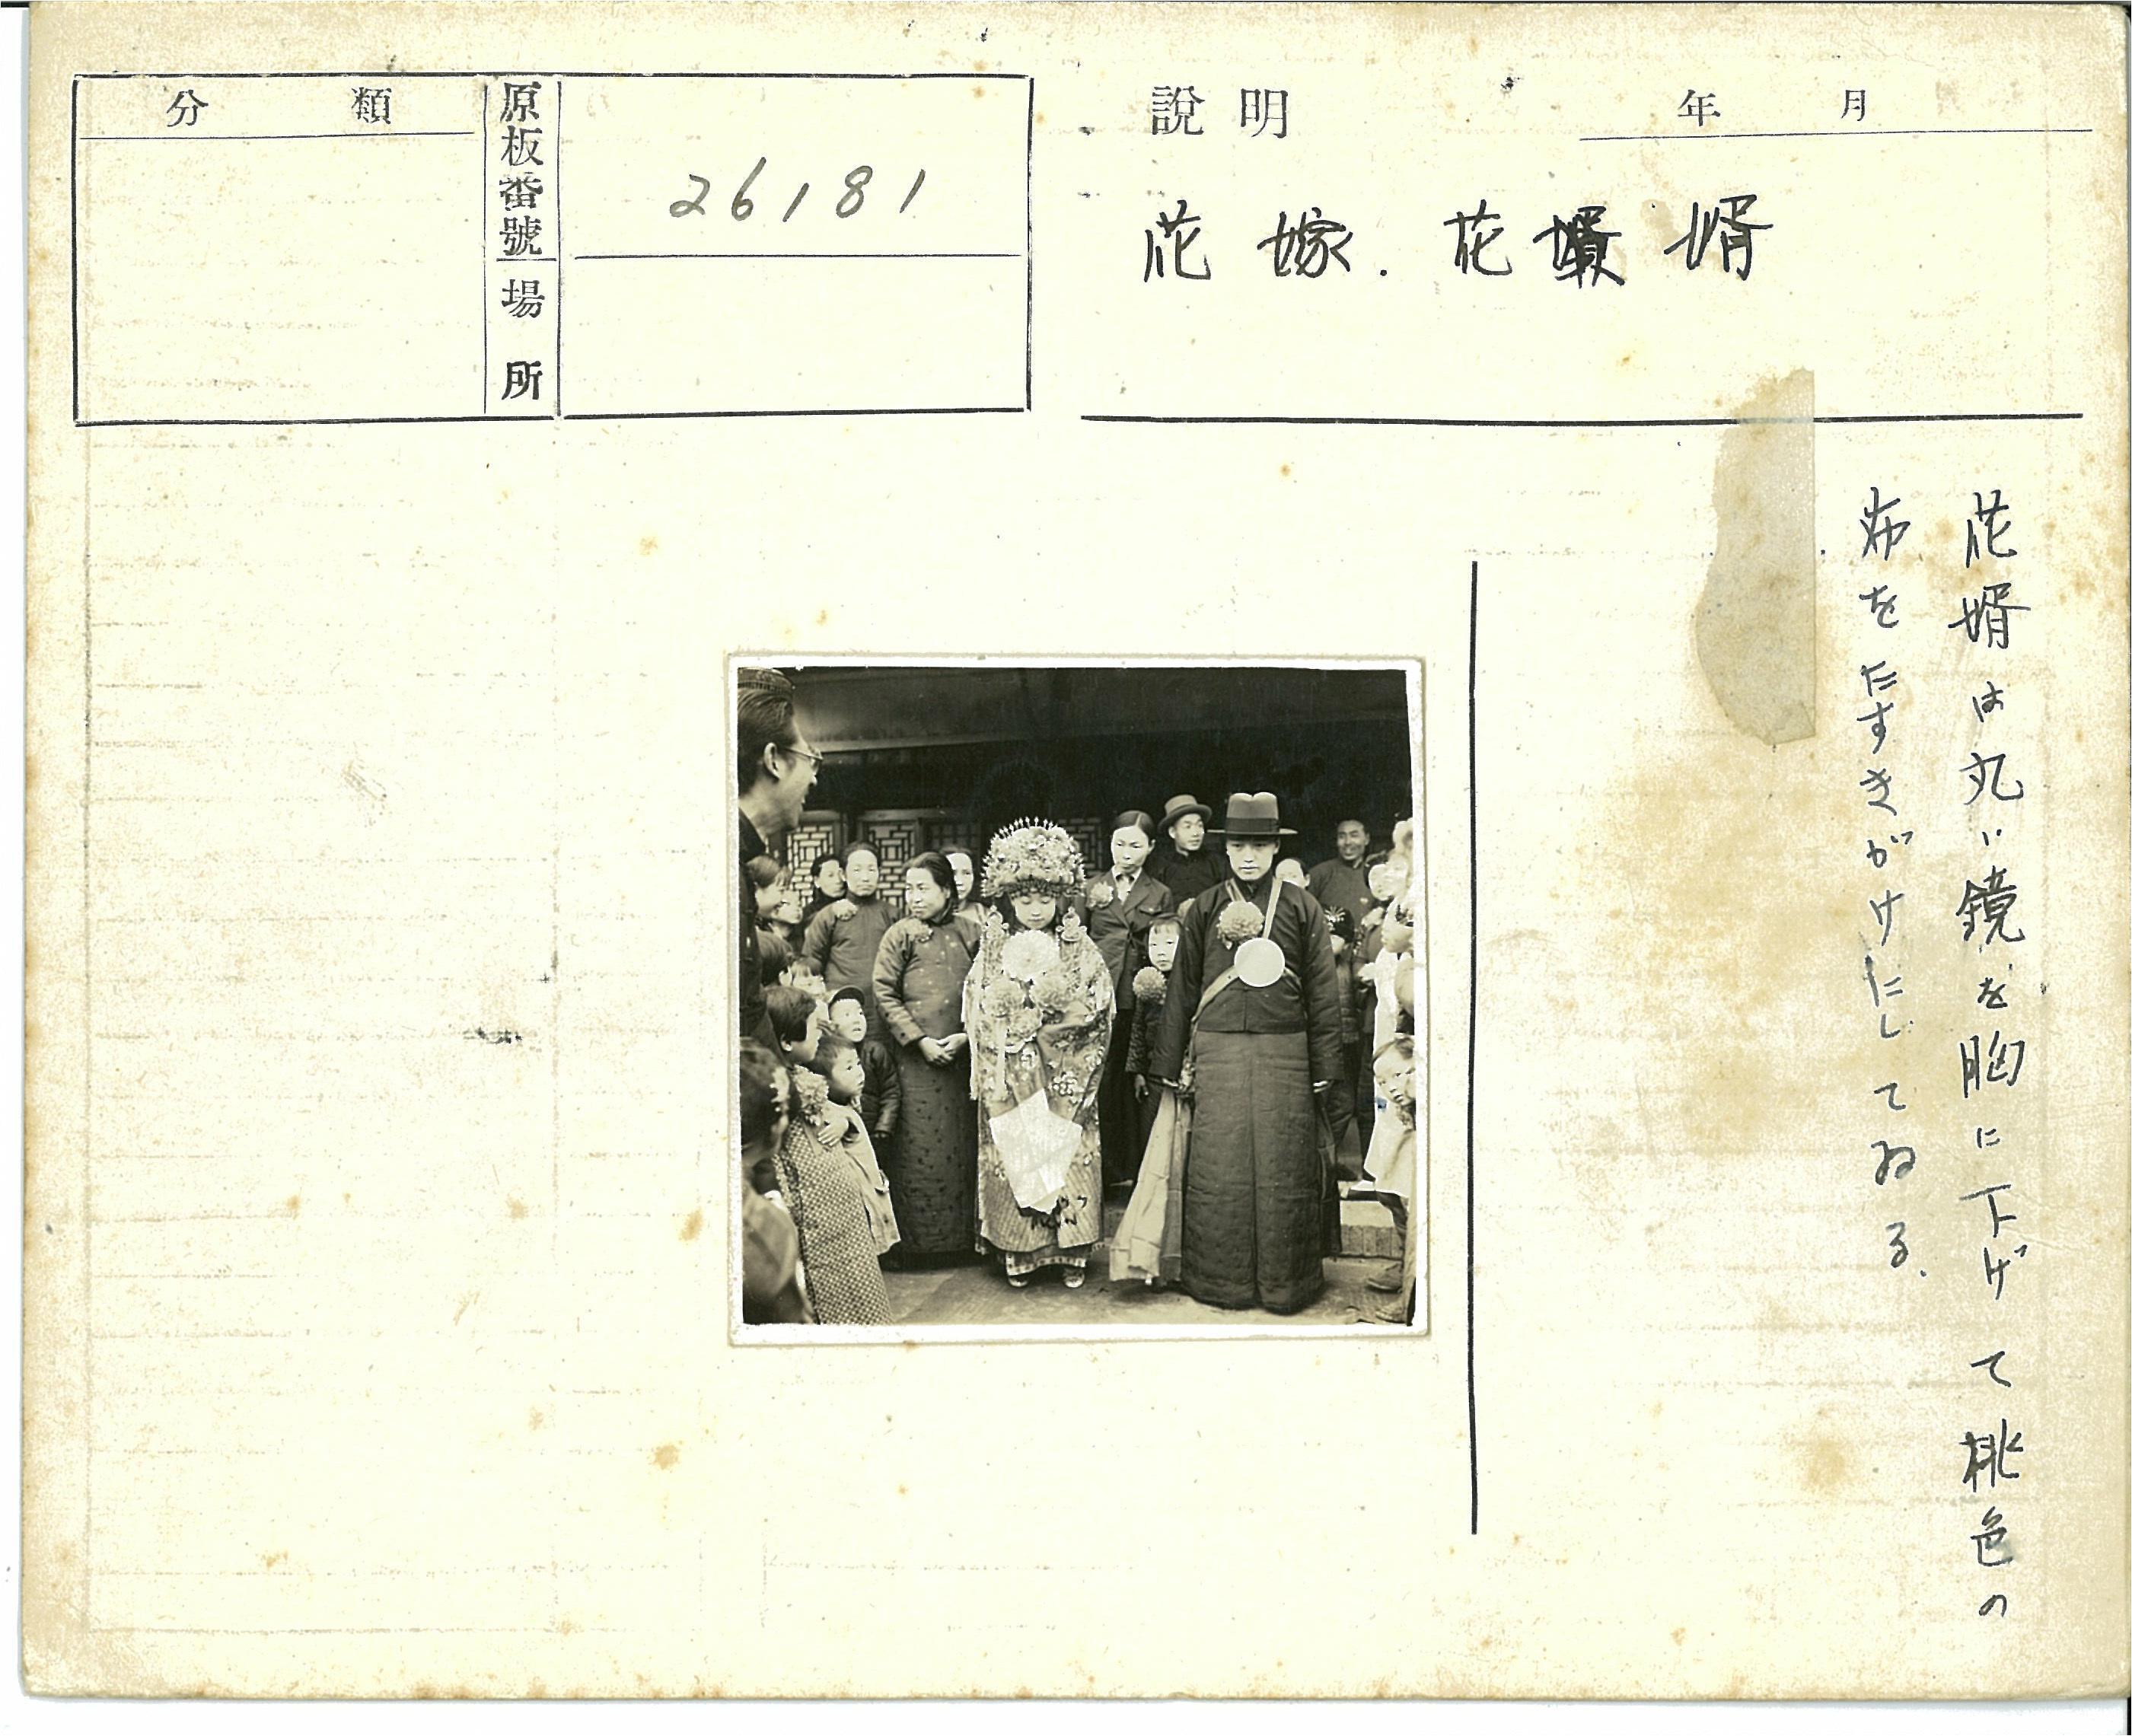 分類
原板番號
26181
場所
説明
年 月
花嫁.花婿
花婿は丸い鏡を胸に下げて桃色の
布をたすきがけにしてゐる.